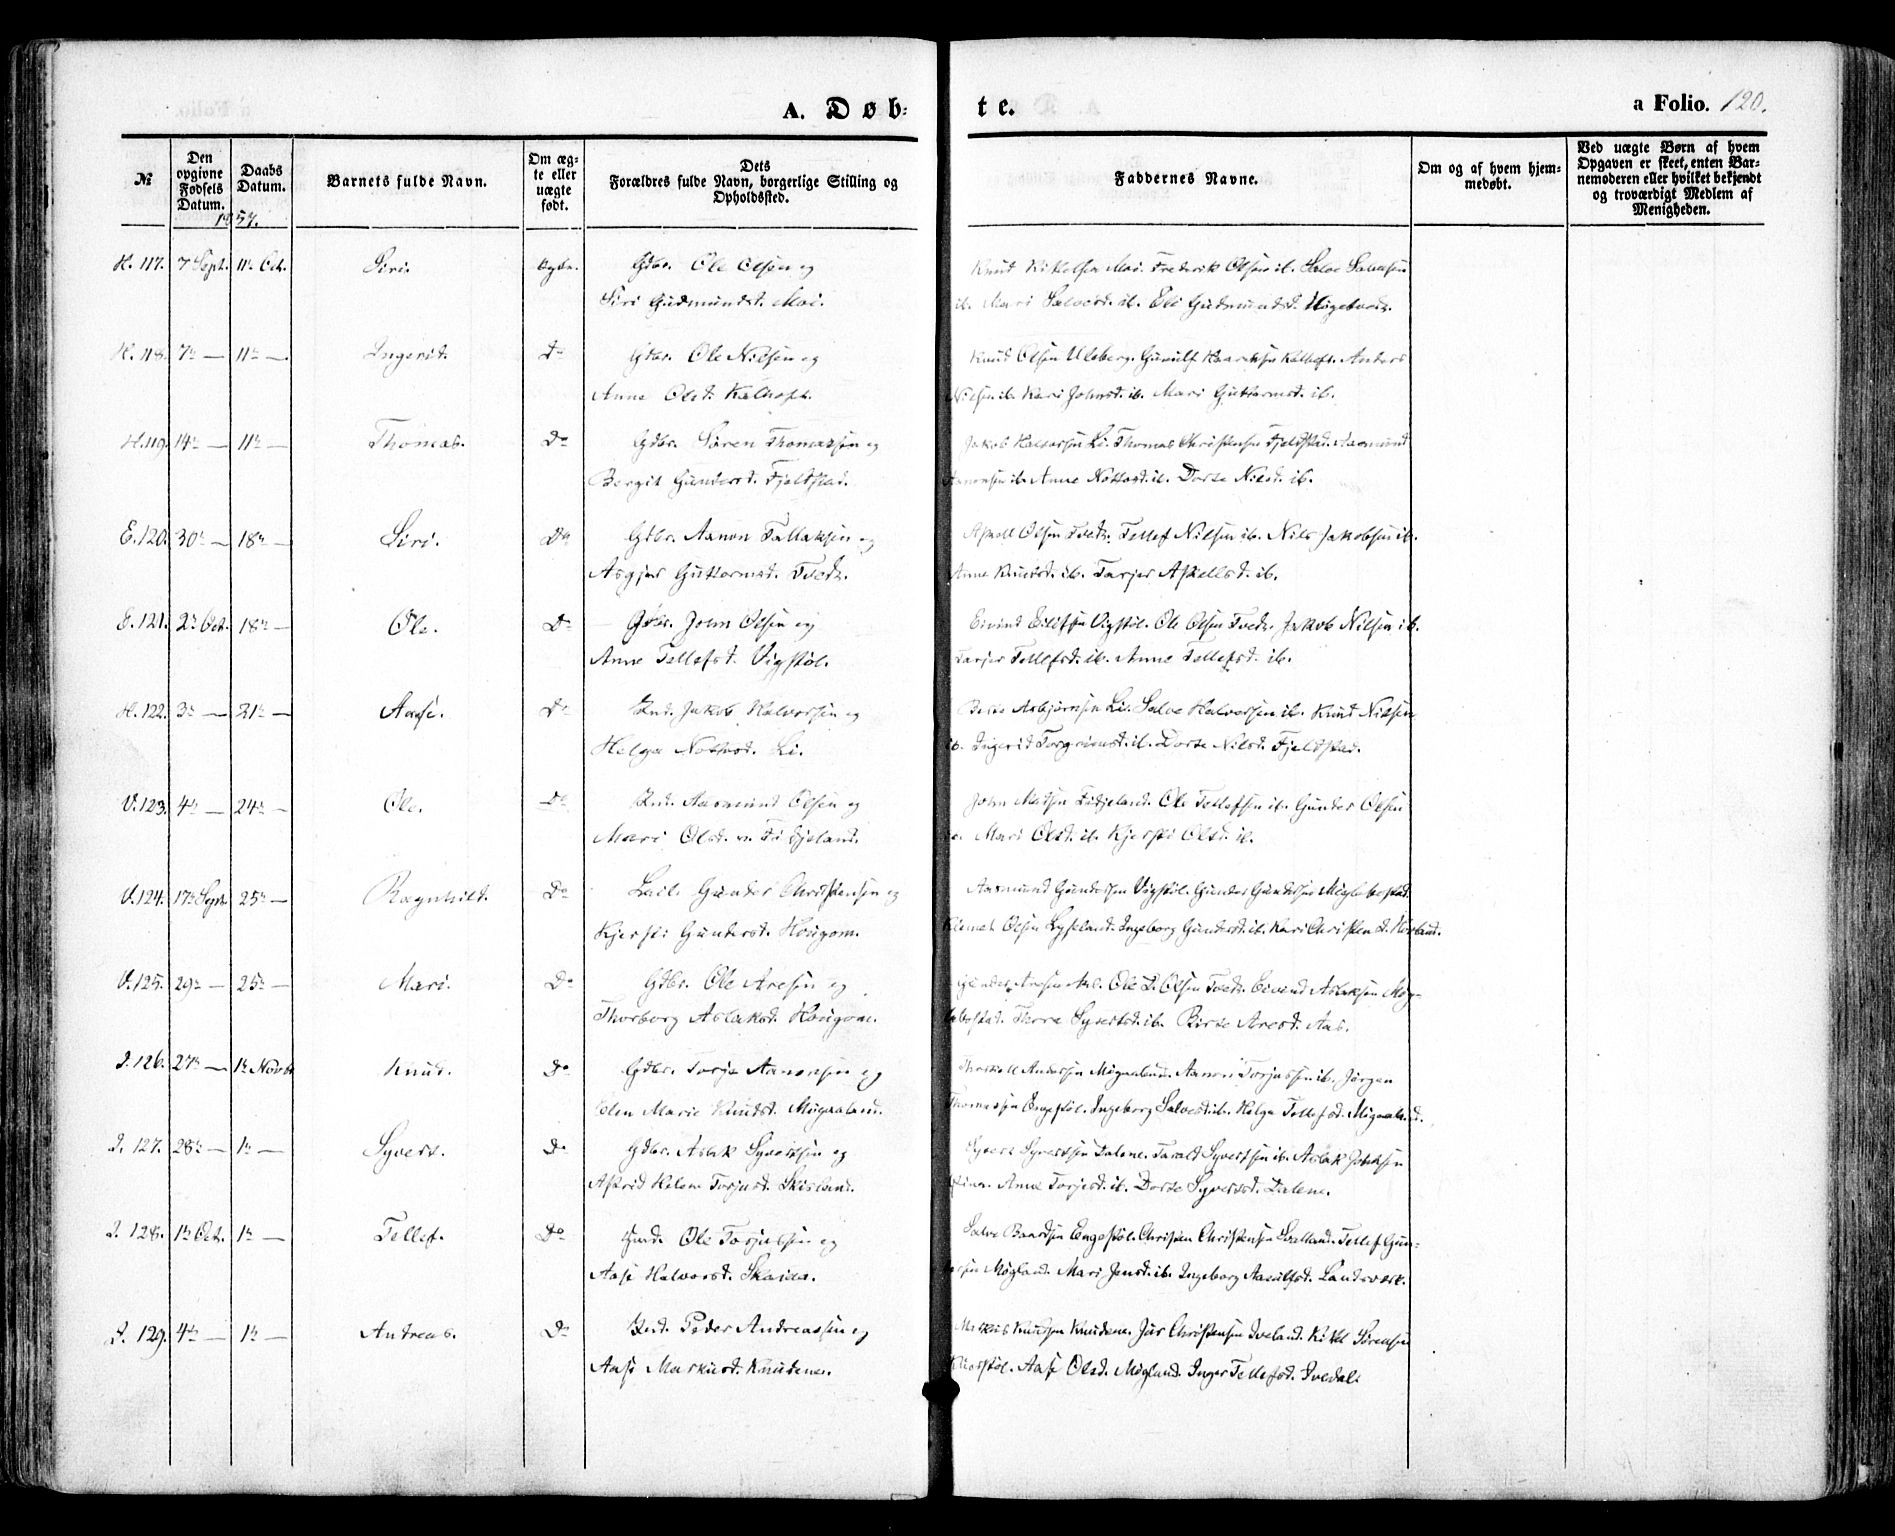 A. Døb-
te.
a Folio. 120.
№
Den opgivne Fødsels Datum.
Daabs Datum.
Barnets fulde Navn.
Om ægte eller uægte født.
Dets Forældres fulde Navn, borgerlige Stilling og Opholdssted.
Faddernes Navne.
Om og af hvem hjemmedøbt.
Ved uægte Børn af hvem Opgaven er skeet, enten Barnemoderen eller hvilket bekjendt og troværdigt Medlem af Menigheden.
1857.
H. 117. 7 Sept. 11te Oct. Siri. Gdbr. Ole Olsen og
Siri Gudmundsd. Moi.
Frederik Olsen ib. Salve
ib. Mari Salvesd. ib. Eli Gudmundsd.
H. 118. 7de — 11te — Ingerid. Do Gdbr. Ole Nilsen og
Anne Olsd. Kalhoft.
Knud Olsen Uleberg. Anders
Nilsen ib. Kari Johnsd. ib. Mari Guttormsd. ib.
H. 119. 14de — 11te — Thomas. Do Gdbr. Sören Thomassen og
Bergit Gundersd. Fjeldstad.
Jakob Halvorsen Li. Thomas Christensen Fjeldstad. Aasmund
Aanonsen ib. Anne ib. Dorte Nilsd. ib.
E. 120. 30te — 18de — Siri. Do Gdbr. Aanon Tallaksen og
Asgjer Guttormsd. Tvedt.
Askell Olsen Tvedt. Tellef Nilsen ib. Nils Jakobsen ib.
Anne Knudsd. ib. Tarjer Askellsd. ib.
E. 121. 2de Oct. 18de — Ole. Do Gdbr. John Olsen og
Anne Tellefsd. Vigstöl.
Eivind Eilifsen Vigstöl. Ole Olsen Tvedt. Jakob Nilsen ib.
Tarjer Tellefsd. ib. Anne Tellefsd. ib.
H. 122. 3de — 21de — Aase. Do Ind. Jakob Halvorsen og
Helga Li.
Asbjørnsen Li. Salve Halvorsen ib. Knud Nilsen
ib. Ingerid Torgrimsd. ib. Dorte Nilsd. Fjeldstad.
V. 123. 4de — 24de — Ole. Do Ind. Aasmund Olsen og
Mari Olsd. Fidjeland.
John Madsen Fidjeland. Ole Tellefsen ib. Gunder Olsen
ib. Mari Olsd. ib. Kjersti Olsd. ib.
V. 124. 17de Sept. 25de — Ragnhild. Do Gunder Christensen og
Kjersti Gundersd. Hougom.
Aasmund Gundersen Vigstöl. Gunder Gundersen Møglebostad.
Klemet Olsen Lyseland. Ingeborg Gundersd. ib. Kari
V. 125. 29de — 25de — Mari. Do Gdbr. Ole Aresen og
Thorborg Aslaksd. Hougom.
Gunder Aresen Aas. Ole Olsen Tvedt. Eivind Aslaksen Møg-
lebostad. Thore Syvertsd. ib. Birte Aresd. Aas.
I. 126. 27de — 1ste Novbr. Knud. Do Gdbr. Torje Aanonsen og
Elen Marie Knudsd. Møgaaland.
Andersen Møgaaland. Aanon Torjussen ib. Jörgen
Thomassen Engestöl. Ingeborg Salvesd. ib. Helga Tellefsd. Møgaaland.
I. 127. 28de — 1ste — Syvert. Do Gdbr. Aslak Syvertsen og
Astrid Helene Torjusd. Skisland.
Syvert Syvertsen Dalene. Tarald Syvertsen ib. Aslak
Anne Torjesd. ib. Dorte Syversd. Dalene.
I. 128. 1ste Oct. 1ste — Tellef. Do Ole Torjussen og
Aase Halvorsd. Skaiaa.
Salve Baardsen Engestöl. Christen Christensen Tellef Gun-
dersen Møgland. Mari Jensd. ib. Ingeborg Aasulfsd. Landsverk.
I. 129. 4de — 1ste — Andreas. Do Ind. Peder Andreassen og
Aase Markusd. Knudene.
Markus Knudsen Knudene. Jur Christensen Iveland. Kittel Sørensen
Aase Olsd. Møgland. Inger Tellefsd. Ivedal.